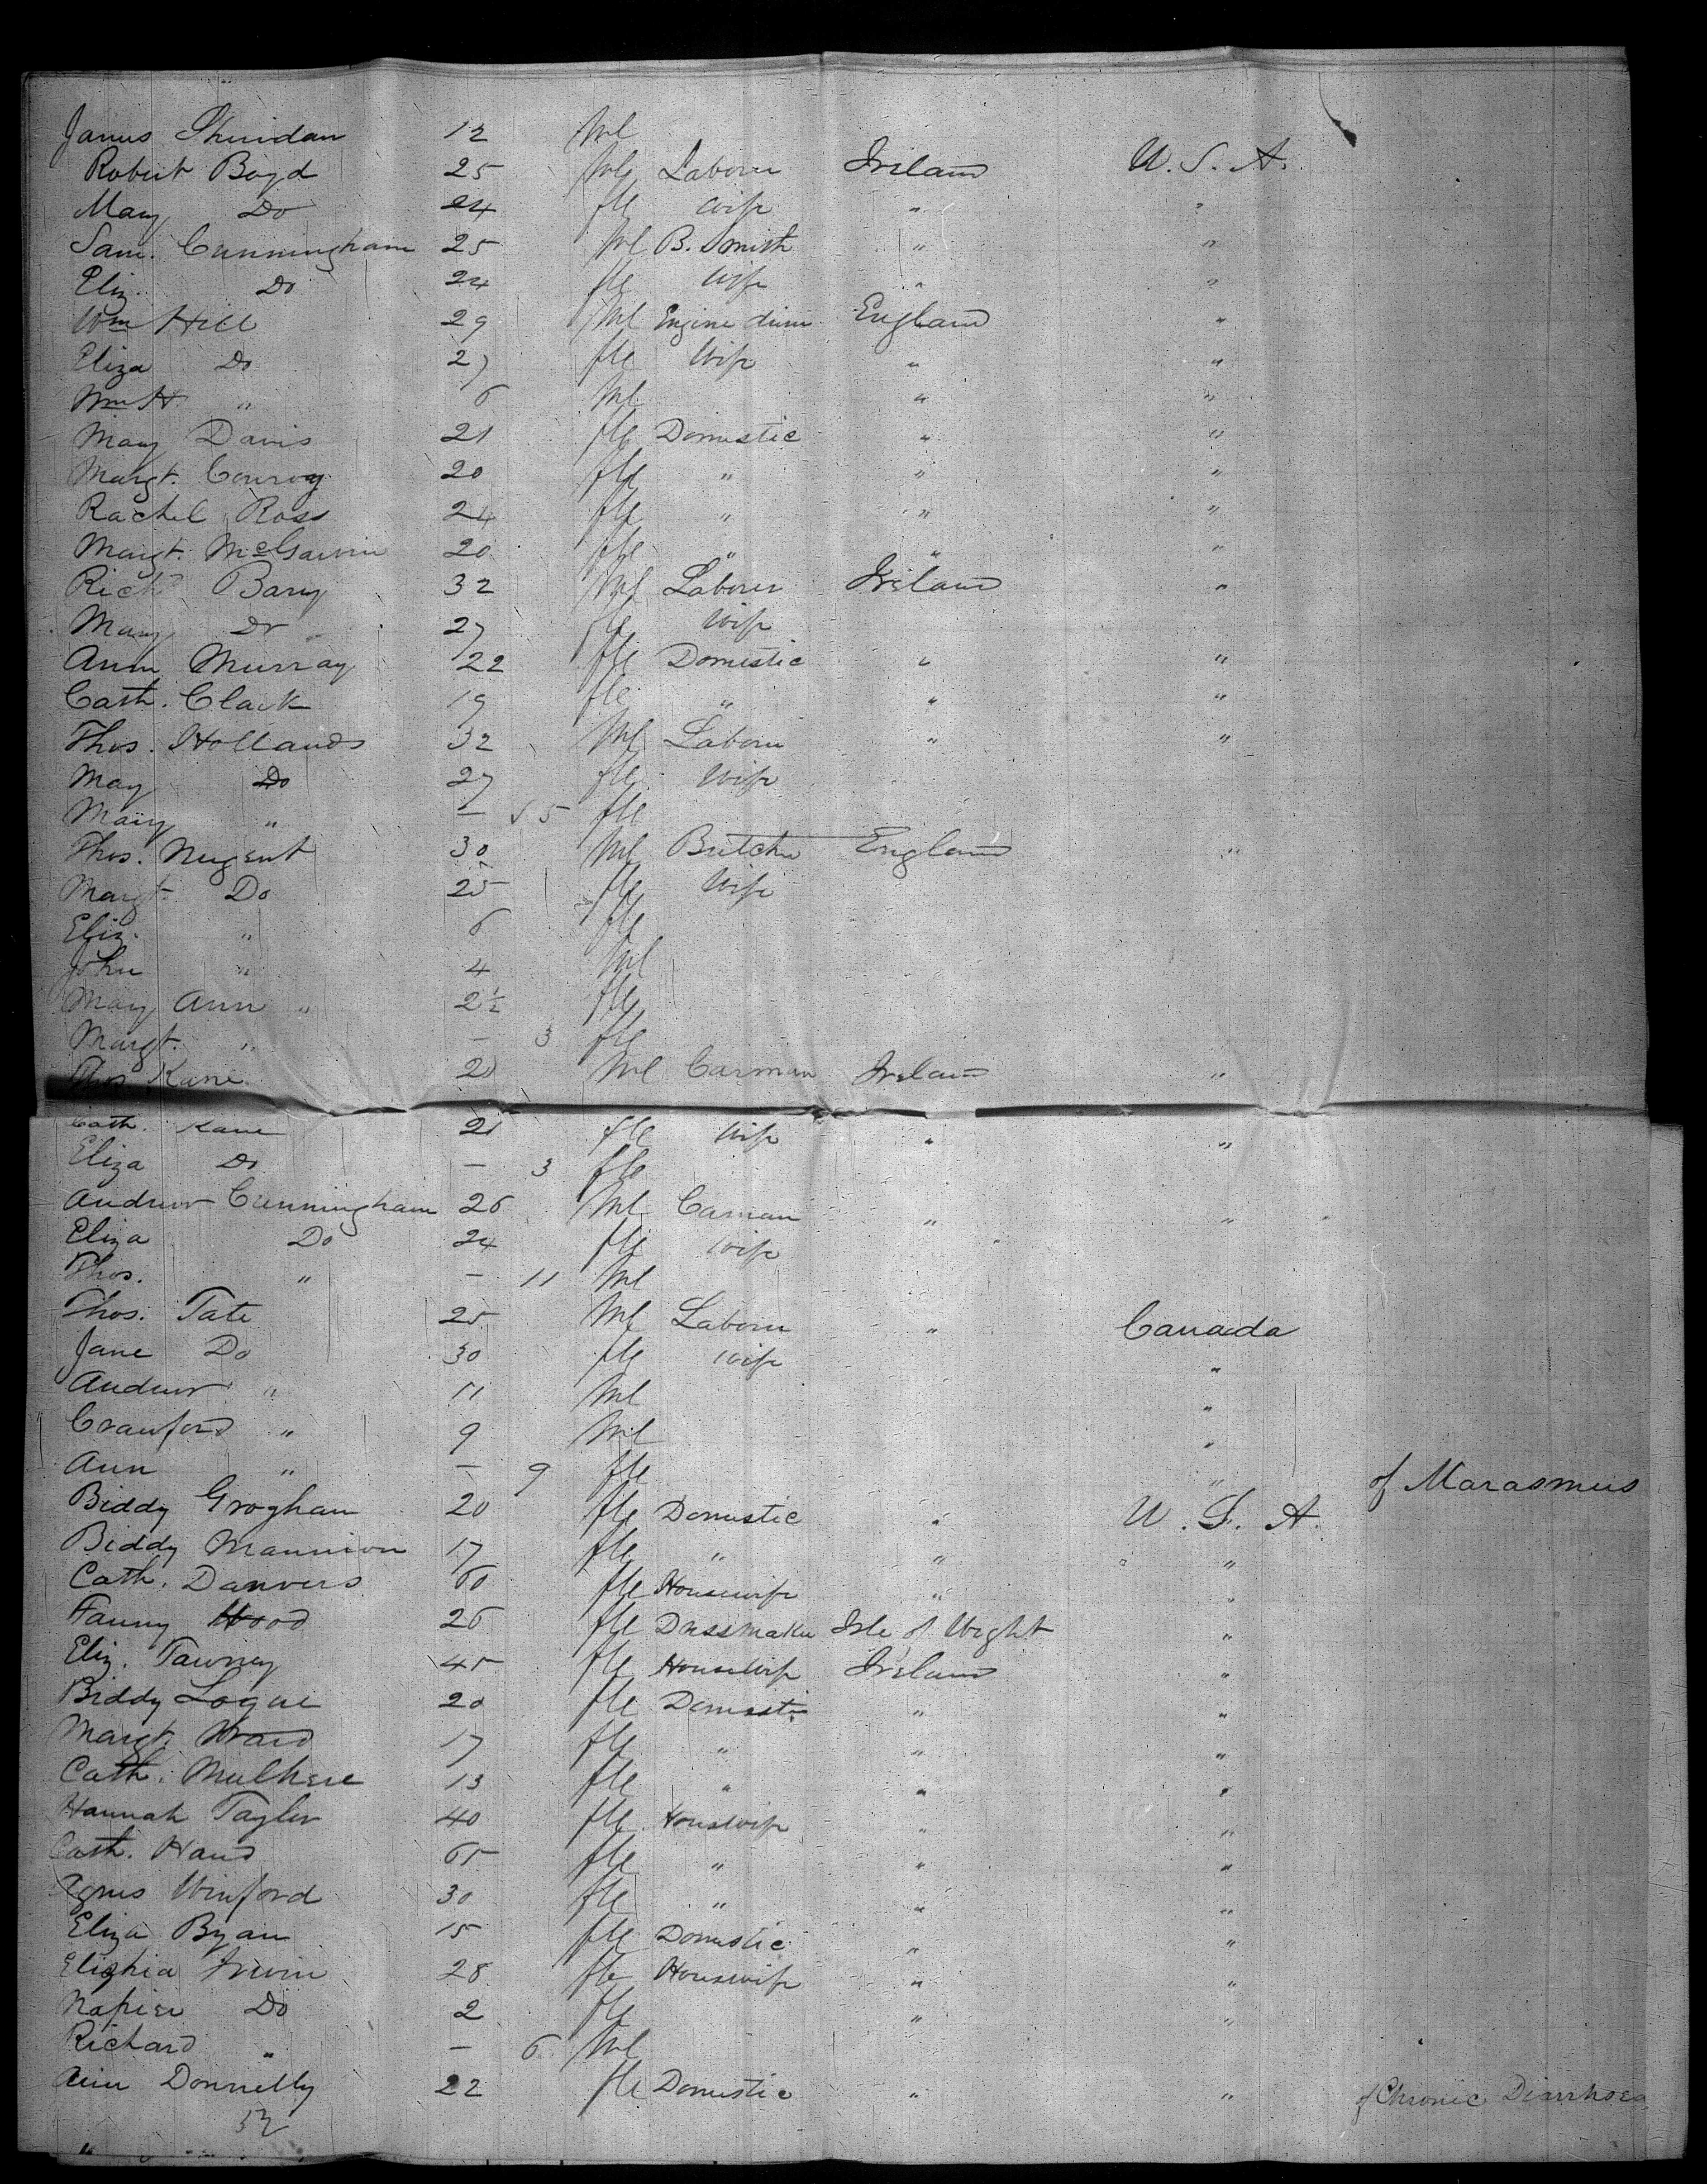 James Sheridan 12 Ml
Robert Boyd 25 Ml Laborer Ireland U. S. A.
Mary Do 24 fle Wife " "
Sam. Cunningham 25 Ml B. Smith " "
Eliz. Do 24 fle Wife " "
Wm Hill 29 Ml Engine driver England "
Eliza Do 27 fle Wife " "
Wm H " 6 Ml " "
Mary Davis 21 fle Domestic " "
Margt. Conroy 20 fle " " "
Rachel Ross 24 fle " " "
Margt. McGarvin 20 fle " " "
Richd Barry 32 Ml Laborer Ireland "
Mary Do 27 fle Wife
Ann Murray 22 fle Domestic " "
Cath. Clark 19 fle " " "
Thos. Hollands 32 Ml Laborer " "
Mary Do 27 fle Wife
Mary " — 5 fle
Thos. Nugent 30 Ml Butcher England "
Margt. Do 25 fle Wife
Eliz. " 6 fle
John " 4 Ml
Mary Ann " 2½ fle
Margt. " — 3 fle
Thos Kane 21 Ml Carman Ireland "
Cath. Kane 21 fle Wife " "
Eliza Do — 3 fle
Andrew Cunningham 26 Ml Carman " "
Eliza Do 24 fle Wife
Thos. " — 11 Ml
Thos. Tate 25 Ml Laborer " Canada
Jane Do 30 fle Wife "
Andrew " 11 Ml "
Crawford " 9 Ml "
Ann " — 9 fle " of Marasmus
Biddy Groghan 20 fle Domestic " U. S. A.
Biddy Mannion 17 fle " " "
Cath. Danvers 60 fle Housewife " "
Fanny Wood 26 fle Dressmaker Isle of Wight "
Eliz. Tawney 45 fle Housewife Ireland "
Biddy Logue 20 fle Domestic " "
Margt. Ward 17 fle " " "
Cath. Mulhere 13 fle " " "
Hannah Taylor 40 fle Houswife " "
Cath. Hand 65 fle " " "
Agnes Winford 30 fle " " "
Eliza Byan 15 fle Domestic " "
Irwin 28 fle Housewife " "
Napier Do 2 fle " "
Richard " — 6 Ml
Ann Donnelly 22 fle Domestic " " of Chronic Diarrhoea
52